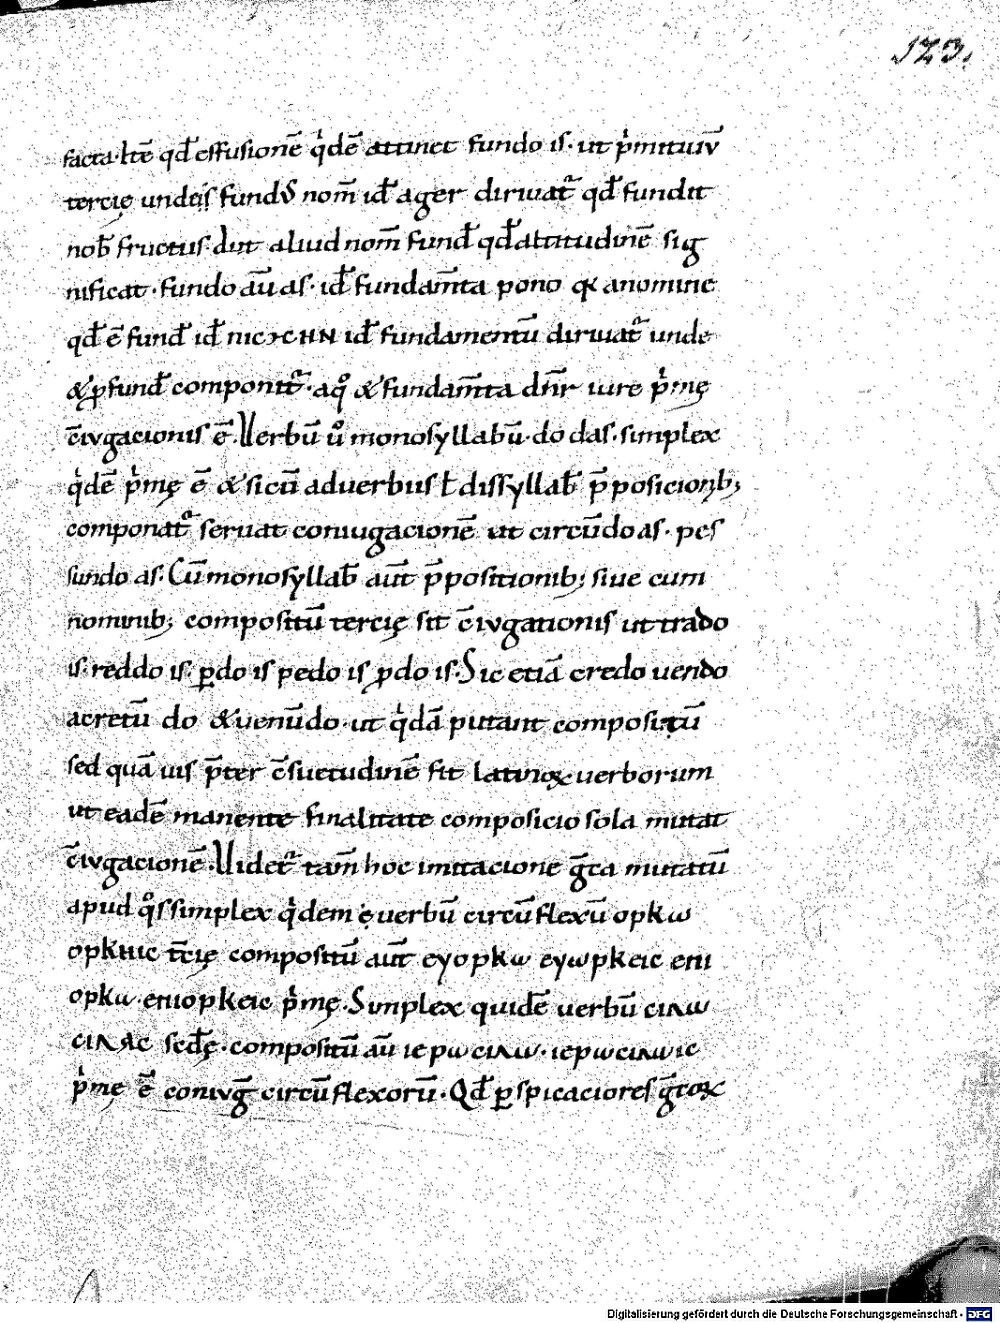 123.
facta· lt̄ē qđ effusionē q̇dē attinet fundo is· ut ṗmitiuū
tercię undeis fundꝰ nom̄ iđ ager diriuat᷑ qđ fundit
nob̄ fructus· dūt aliud nom̄ fund̄ qđ altitudinē sig
nificat· fundo aū as· iđ fundam̄ta pono qꝛ a nomine
qđ ē fund̄ iđ iđ fundamentū diriuat᷑ unde
& ꝓfund̄ componit᷑· a qͦ & fundam̄ta dn̄r iure ṗmę
c̄iugacionis ē. Uerbū uͦ monosyllabū· do das· simplex
q̇dē ṗmę ē & si cū aduerbiis ł dissyllab̄ p̄posicionib;
componat᷑ seruat coniugacionē ut circūdo as· pes
sundo as. Cū monosyllab̄ aūt p̄positionib; siue cum
nominib; compositū tercię fit c̄iugationis ut trado
is· reddo is· ꝑdo is pedo is ꝓdo is· Sic etiā credo uendo
a cretū do & uenūdo· ut q̇dā putant compositū
sed quāuis p̄ter c̄suetudinē fit latinoꝝ uerborum
ut eadē manente finalitate composicio sola mutat
c̄iugacionē. Uidet᷑ tam̄ hoc imitacione gr̄ca mutatū
apud qͦs simplex q̇dem ę uerbū circūflexū opkω
opkHic t̄cię compositū aūt eyopkω eyωpkeic eπι
opkω· eπιopkeic ṗmę. Simplex quidē uerbū cιλω
cιλᴀc sc̄dę· compositū aū ιepωcιλω· ιepωcιλωιc
ṗmę ē coniuḡ circūflexorū· Qđ ꝑspicaciores gr̄coꝝ
Digitalisierung gefördert durch die Deutsche Forschungsgemeinschaft - DFG